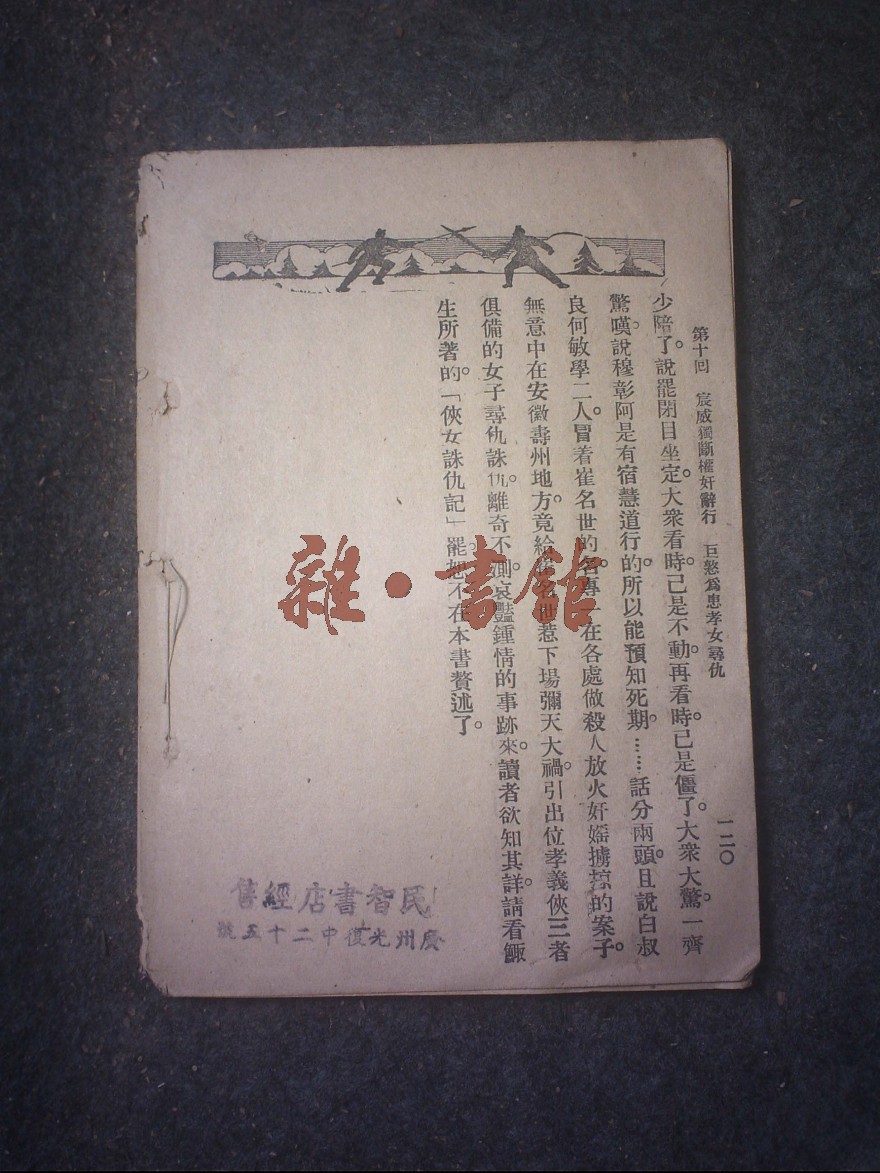 第十回 宸威獨斷權奸辭行 巨憝爲患孝女尋仇
一二〇
少陪了。說罷閉目坐定大衆看時。已是不動。再看時。已是僵了。大衆大驚。一齊
驚嘆。說穆彰阿是有宿慧道行的。所以能預知死期。……話分兩頭。且說白叔
良何敏學二人。冒着崔名世的名。專 在各處做殺人放火奸婬擄掠的案子。
無意中在安徽壽州地方。竟給 惹下場彌天大禍。引出位孝義俠三者
俱備的女子尋仇誅仇。離奇不測。哀豔鍾情的事跡來。讀者欲知其詳。請看
生所著的。「俠女誅仇記」罷。恕不在本書贅述了。
民智書店經售
廣州光復中二十五號
雜·書館